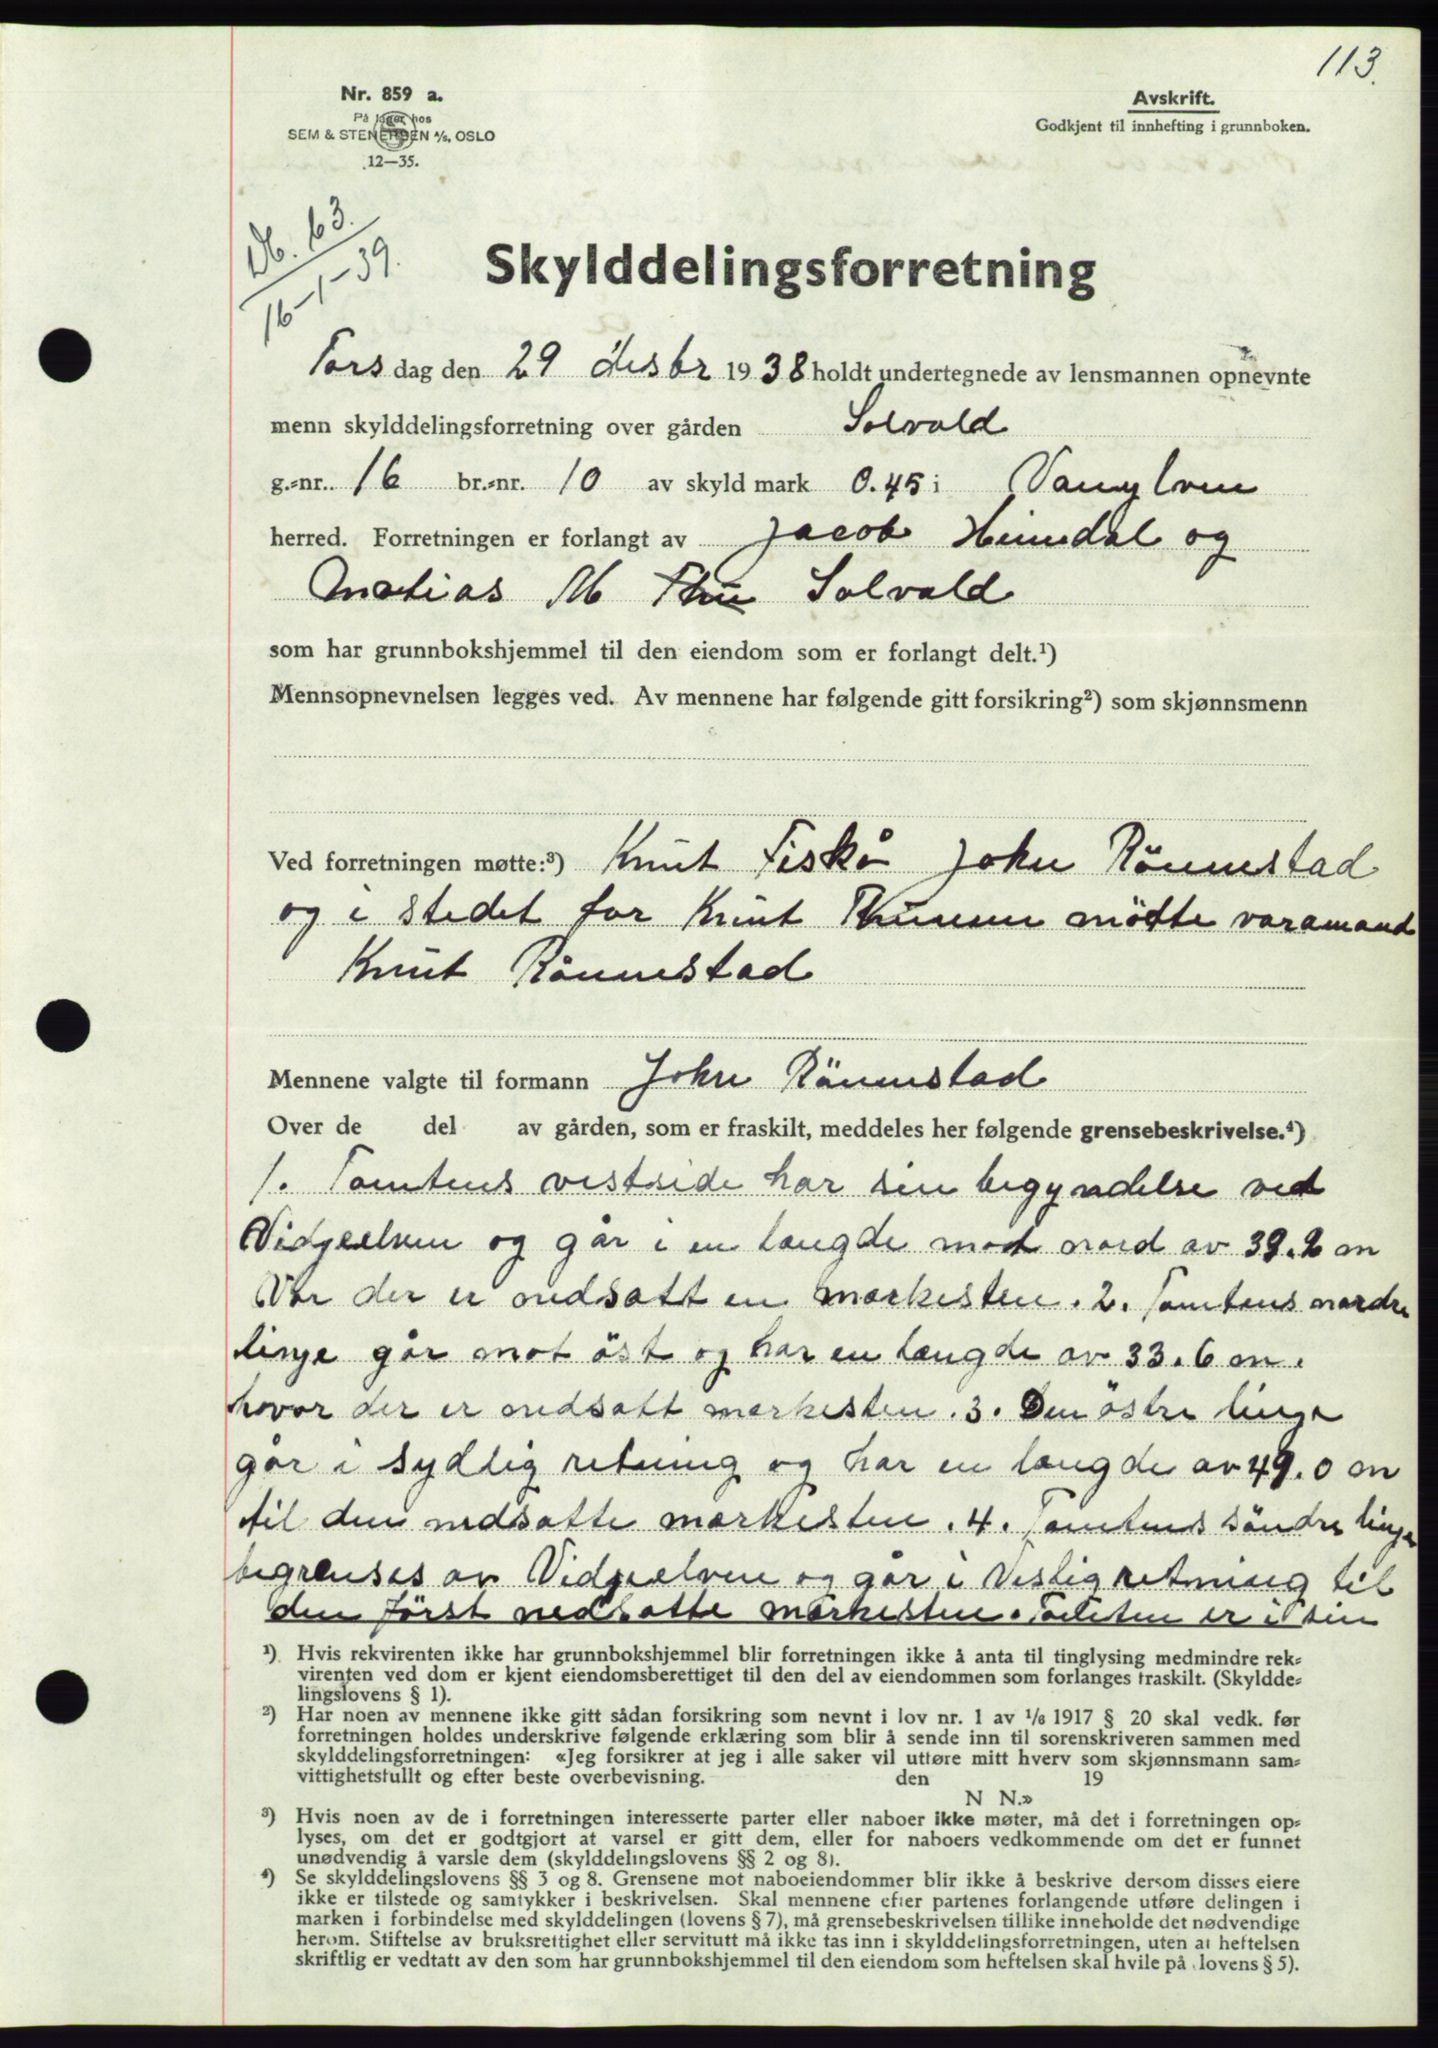 113.
Nr. 859 a.
På lager hos
SEM & STENERSEN A/S. OSLO
12—35.
Avskrift.
Godkjent til innhefting i grunnboken.
Nr. 63.
16-1-39.
Skylddelingsforretning
Torsdag den 29 desbr 1938 holdt undertegnede av lensmannen opnevnte
menn skylddelingsforretning over gården Solvold
g.=nr. 16 br.=nr. 10 av skyld mark 0.45 i Vanylven
herred. Forretningen er forlangt av Jacob Heimdal og
Matias M Thu Solvold
som har grunnbokshjemmel til den eiendom som er forlangt delt.¹)
Mennsopnevnelsen legges ved. Av mennene har følgende gitt forsikring²) som skjønnsmenn
Ved forretningen møtte:³) Knut Fiskå John Rönnestad
og i stedet for Knut Thunem mötte varamand
Knut Rönnestad
Mennene valgte til formann John Rönnestad
Over de del av gården, som er fraskilt, meddeles her følgende grensebeskrivelse.⁴)
1. Tomtens vestside har sin begyndelse ved
Vidjeelven og går i en længde mot nord av 39.2 m
Var der er nedsatt en merkesten. 2. Tomtens nordre
linje går mot öst og har en længde av 33.6 m.
hvor der er nedsatt merkesten. 3. Den östre linje
går i sydlig retning og har en længde av 49.0 m
til den nedsatte merkesten. 4. Tomtens söndre linje
begrenses av Vidjeelven og går i Vestlig retning til
den först nedsatte merkesten. Tomten er i sin
¹) Hvis rekvirenten ikke har grunnbokshjemmel blir forretningen ikke å anta til tinglysing medmindre rek=
virenten ved dom er kjent eiendomsberettiget til den del av eiendommen som forlanges fraskilt. (Skyldde=
lingslovens § 1).
²) Har noen av mennene ikke gitt sådan forsikring som nevnt i lov nr. 1 av 1/8 1917 § 20 skal vedk. før
forretningen holdes underskrive følgende erklæring som blir å sende inn til sorenskriveren sammen med
skylddelingsforretningen: «Jeg forsikrer at jeg i alle saker vil utføre mitt hverv som skjønnsmann sam=
vittighetsfullt og efter beste overbevisning. den 19
N N.»
³) Hvis noen av de i forretningen interesserte parter eller naboer ikke møter, må det i forretningen op=
lyses, om det er godtgjort at varsel er gitt dem, eller for naboers vedkommende om det er funnet
unødvendig å varsle dem (skylddelingslovens §§ 2 og 8).
⁴) Se skylddelingslovens §§ 3 og 8. Grensene mot naboeiendommer blir ikke å beskrive dersom disses eiere
ikke er tilstede og samtykker i beskrivelsen. Skal mennene efter partenes forlangende utføre delingen i
marken i forbindelse med skylddelingen (lovens § 7), må grensebeskrivelsen tillike inneholde det nødvendige
herom. Stiftelse av bruksrettighet eller servitutt må ikke tas inn i skylddelingsforretningen, uten at heftelsen
skriftlig er vedtatt av den som har grunnbokshjemmel til den eiendom som heftelsen skal hvile på (lovens § 5).